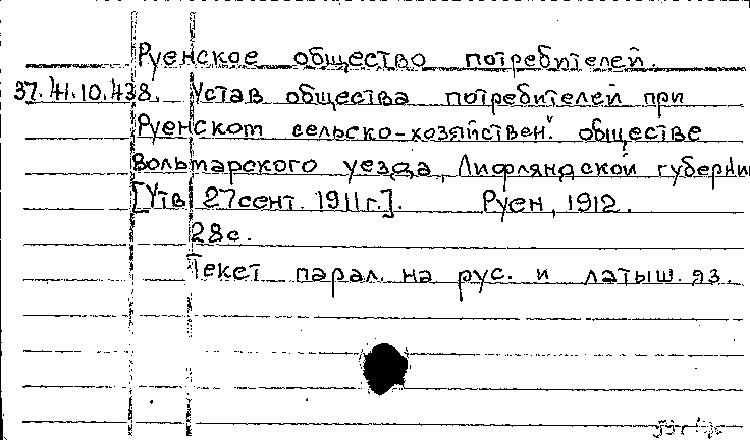 Руенское общество потребителей.
37.41.10.438. Устав общества потребителей при
Руенском сельско-хозяйствен. обществе
Вольмарского уезда, Лифляндской губернии
[Утв. 27 сент. 1911 г.]. Руен, 1912.
28 с.
Текст парал. на рус. и латыш. яз.